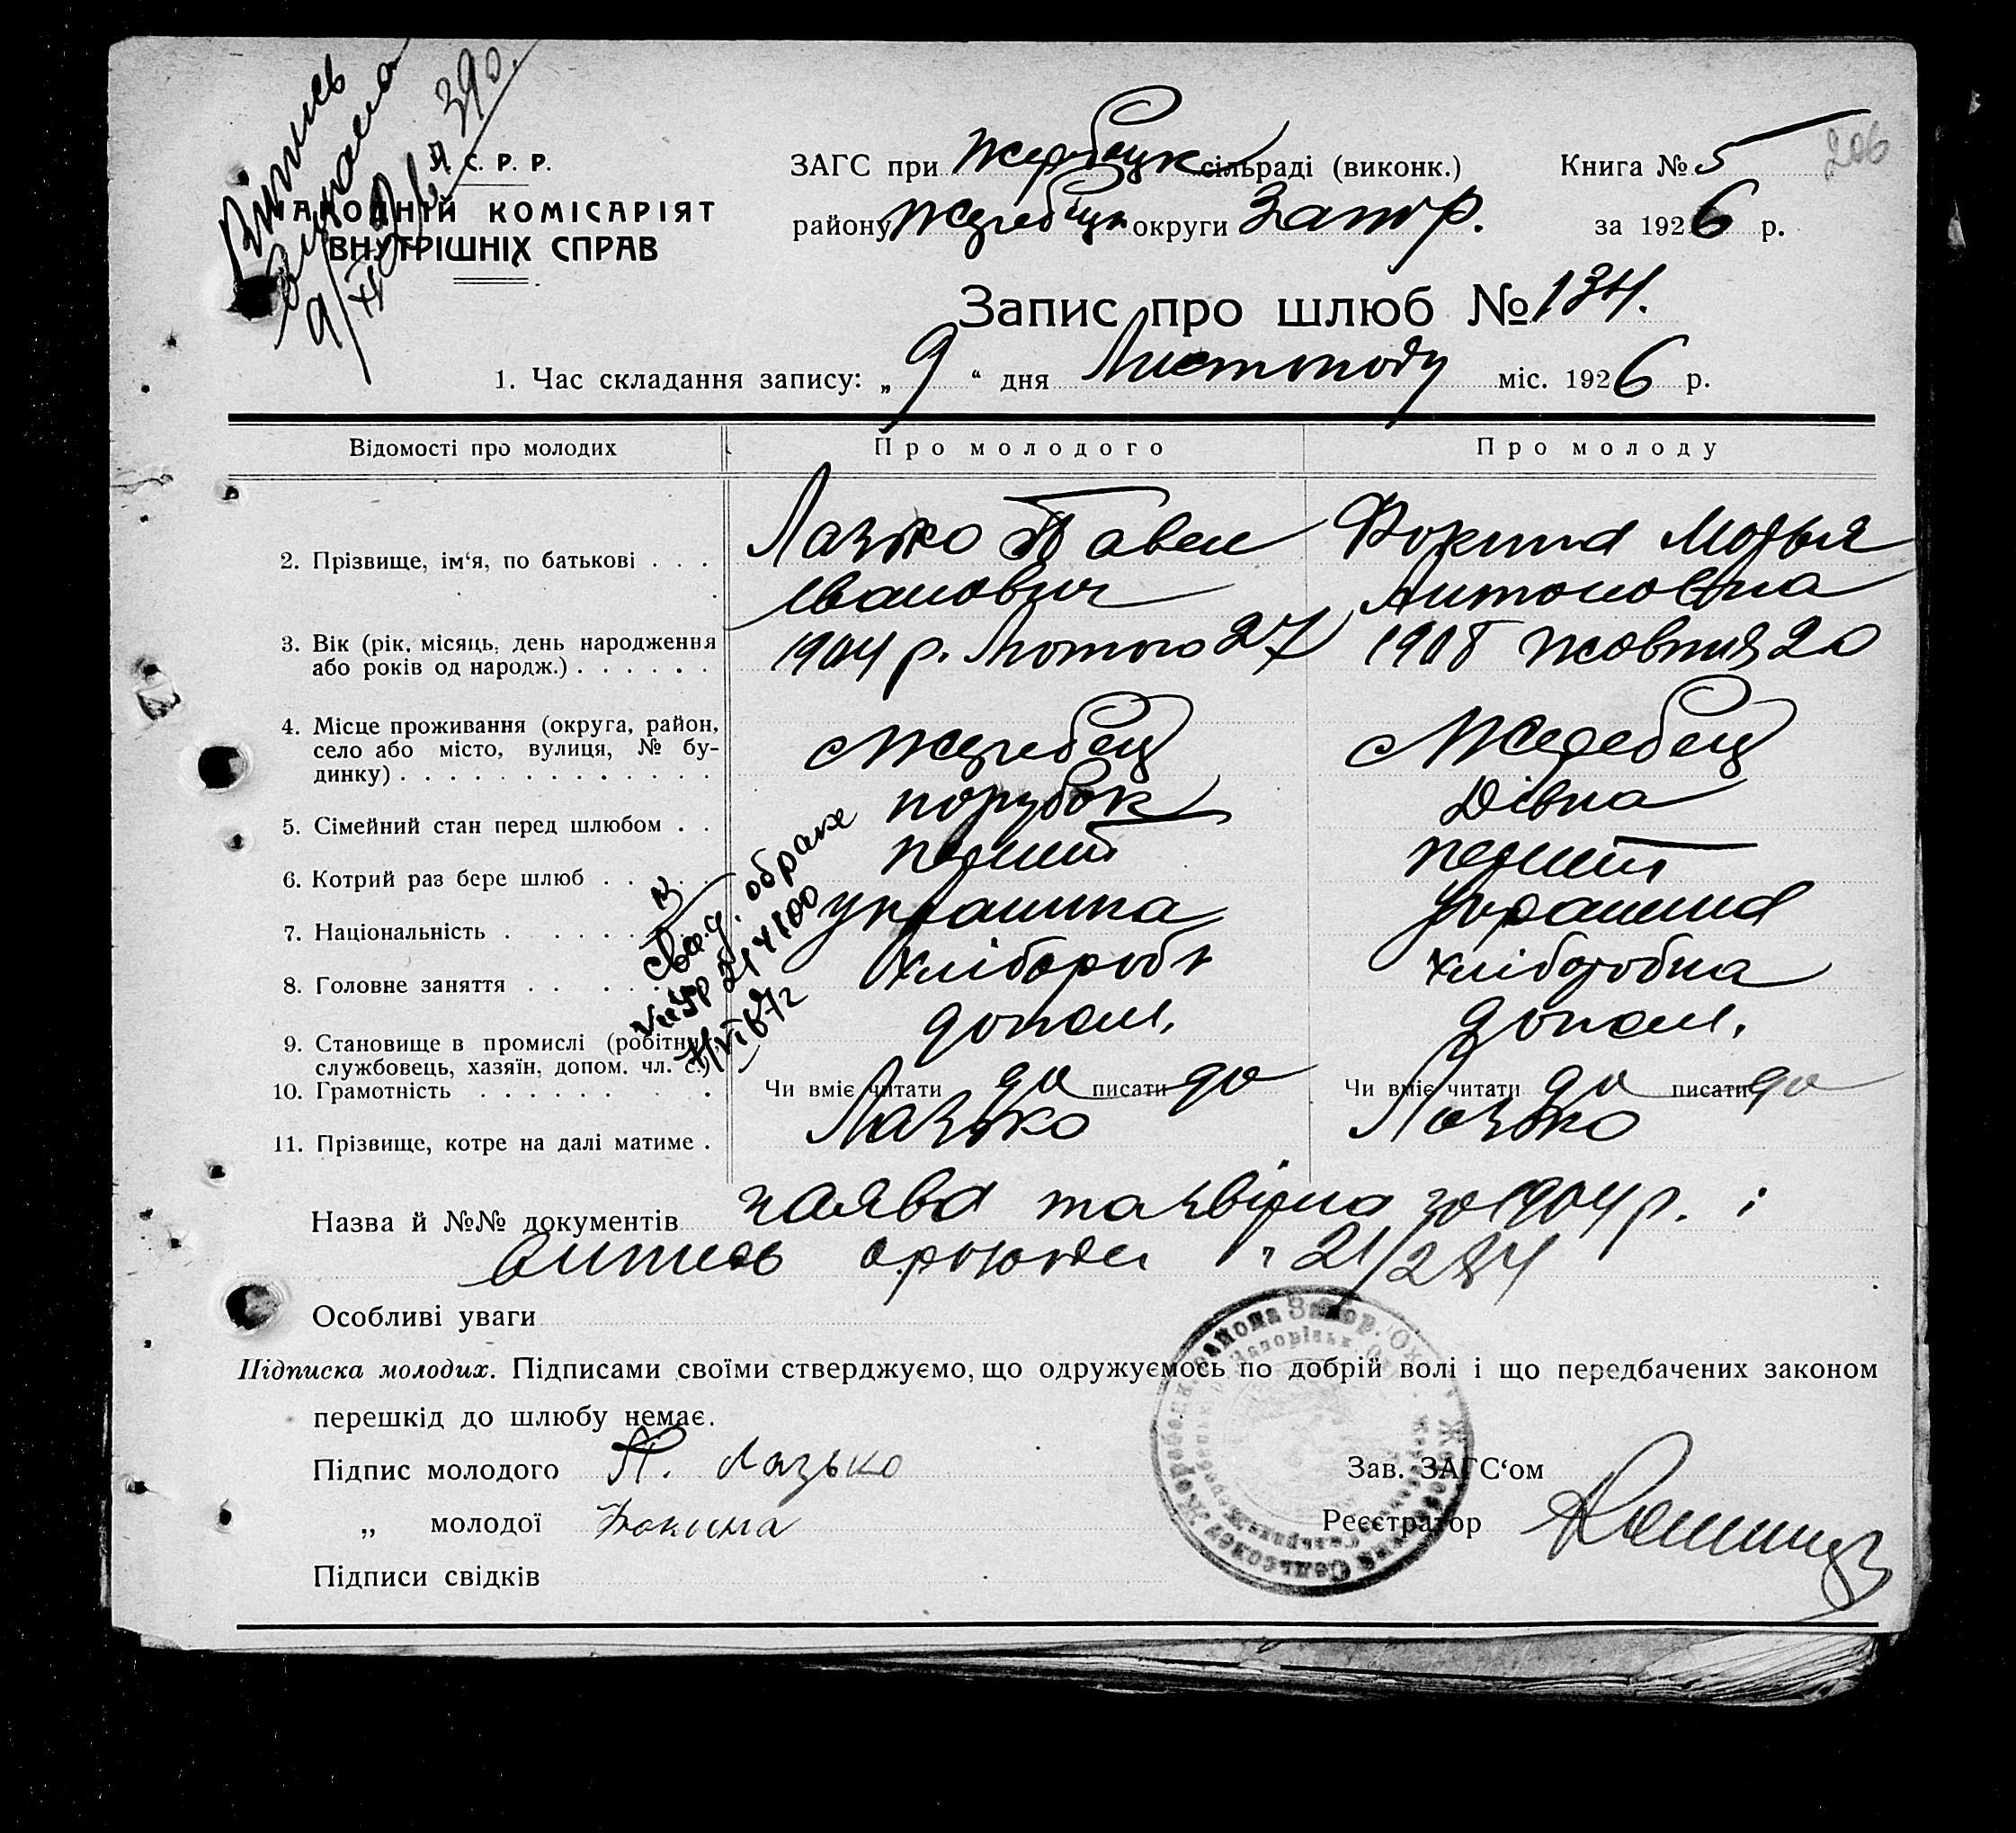 Виписъ
видана
9/XI 39 о.
С. Р. Р.
НАРОДНІЙ КОМІСАРІЯТ
ВНУТРІШНІХ СПРАВ
ЗАГС при Жеребецк сільраді (виконк.) Книга № 5
206
району Жеребецк округи Запор. за 1926 р.
Запис про шлюб № 134.
1. Час складання запису: „ 9 “ дня Листопаду міс. 1926 р.
Відомості про молодих Про молодого Про молоду
2. Прізвище, ім‘я, по батькові . . . Лазько Павел Фокина
Іванович Антоновна
3. Вік (рік, місяць, день народження
або років од народж.) . . . . . . 1904 р. Лютого 27 жовтня 20
4. Місце проживання (округа, район,
село або місто, вулиця, № бу-
динку) . . . . . . . . . . . . . Жеребец Жеребец
5. Сімейний стан перед шлюбом . . порубок Дівка
6. Котрий раз бере шлюб . . . . . перший перший
7. Національність . . . . . . . украинка украинка
8. Головне заняття . . . . . хлібороб хлібородка
9. Становище в промислі (робітник,
службовець, хазяїн, допом. чл. с.) допом. допом.
10. Грамотність . . . . . . . . Чи вміє читати да писати да Чи вміє читати да писати да
11. Прізвище, котре на далі матиме . Лазько Лазько
свид. о браке
Назва й №№ документів заява за 1904 р. і
витись № 21/284
Особливі уваги
Підписка молодих. Підписами своїми стверджуємо, що одружуємось по добрій волі і що передбачених законом
перешкід до шлюбу немає.
Підпис молодого П. Лазько Зав. ЗАГС‘ом
„ молодої Фокина Реєстратор
Підписи свідків